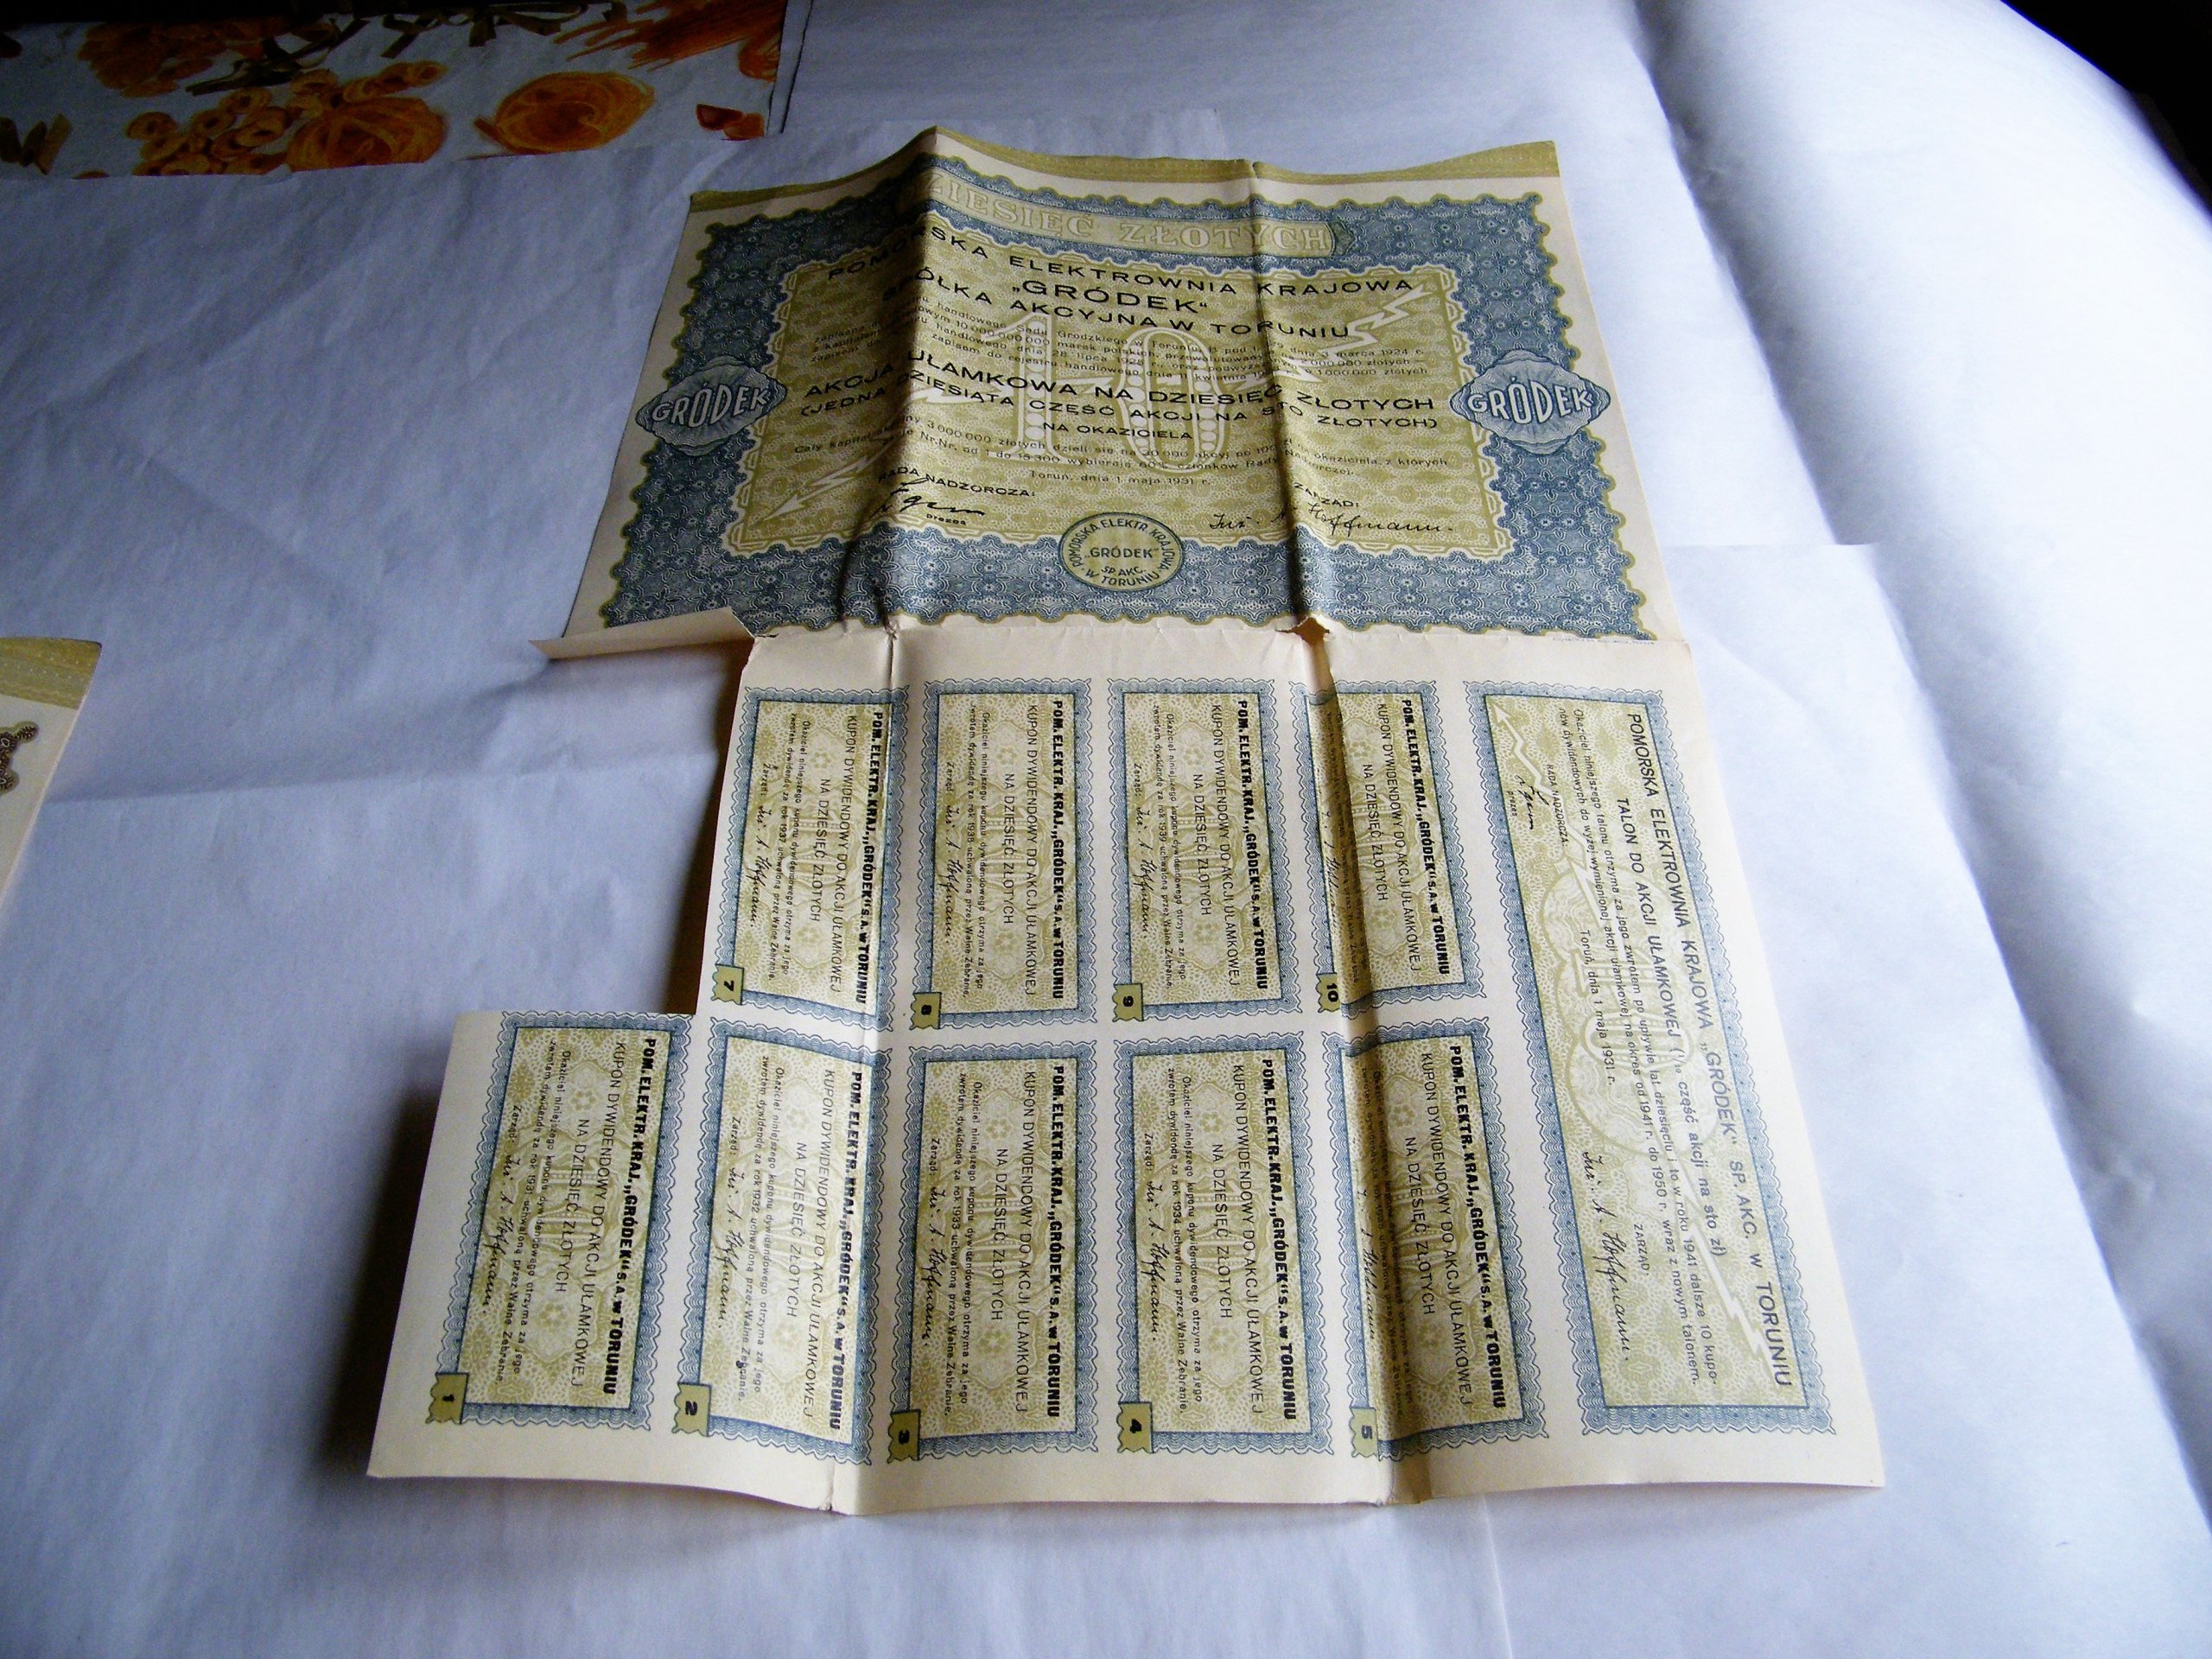 ZIESIĘĆ ZŁOTYCH
POMORSKA ELEKTROWNIA KRAJOWA
„GRÓDEK"
SPÓŁKA AKCYJNA W TORUNIU
AKCJA UŁAMKOWA NA DZIESIĘĆ ZŁOTYCH
(JEDNA DZIESIĄTA CZĘŚĆ AKCJI NA STO ZŁOTYCH)
NA OKAZICIELA
GRÓDEK
GRÓDEK
10
Toruń, dnia 1 maja 1931 r.
RADA NADZORCZA:
prezes
ZARZĄD:
Inż. Hoffmann.
POMORSKA ELEKTR. KRAJOWA
„GRÓDEK"
SP. AKC.
W TORUNIU
POM. ELEKTR. KRAJ. „GRÓDEK" S.A. w TORUNIU
KUPON DYWIDENDOWY DO AKCJI UŁAMKOWEJ
NA DZIESIĘĆ ZŁOTYCH
Okaziciel niniejszego kuponu dywidendowego otrzyma za jego
zwrotem dywidendę za rok 1937 uchwaloną przez Walne Zebranie.
Zarząd: Inż. A. Hoffmann.
7
POM. ELEKTR. KRAJ. „GRÓDEK" S.A. w TORUNIU
KUPON DYWIDENDOWY DO AKCJI UŁAMKOWEJ
NA DZIESIĘĆ ZŁOTYCH
Okaziciel niniejszego kuponu dywidendowego otrzyma za jego
zwrotem dywidendę za rok 1938 uchwaloną przez Walne Zebranie.
Zarząd: Inż. A. Hoffmann.
8
POM. ELEKTR. KRAJ. „GRÓDEK" S.A. w TORUNIU
KUPON DYWIDENDOWY DO AKCJI UŁAMKOWEJ
NA DZIESIĘĆ ZŁOTYCH
Okaziciel niniejszego kuponu dywidendowego otrzyma za jego
zwrotem dywidendę za rok 1939 uchwaloną przez Walne Zebranie.
Zarząd: Inż. A. Hoffmann.
9
POM. ELEKTR. KRAJ. „GRÓDEK" S.A. w TORUNIU
KUPON DYWIDENDOWY DO AKCJI UŁAMKOWEJ
NA DZIESIĘĆ ZŁOTYCH
10
POMORSKA ELEKTROWNIA KRAJOWA „GRÓDEK" SP. AKC. W TORUNIU
TALON DO AKCJI UŁAMKOWEJ (1/10 część akcji na sto zł)
Okaziciel niniejszego talonu otrzyma za jego zwrotem po upływie lat dziesięciu i to w roku 1941 dalsze 10 kupo-
nów dywidendowych do wyżej wymienionej akcji ułamkowej na okres od 1941 r. do 1950 r. wraz z nowym talonem.
Toruń, dnia 1 maja 1931 r.
RADA NADZORCZA:
prezes
ZARZĄD:
Inż. A. Hoffmann.
POM. ELEKTR. KRAJ. „GRÓDEK" S.A. w TORUNIU
KUPON DYWIDENDOWY DO AKCJI UŁAMKOWEJ
NA DZIESIĘĆ ZŁOTYCH
Okaziciel niniejszego kuponu dywidendowego otrzyma za jego
zwrotem dywidendę za rok 1931 uchwaloną przez Walne Zebranie.
Zarząd: Inż. A. Hoffmann.
1
POM. ELEKTR. KRAJ. „GRÓDEK" S.A. w TORUNIU
KUPON DYWIDENDOWY DO AKCJI UŁAMKOWEJ
NA DZIESIĘĆ ZŁOTYCH
Okaziciel niniejszego kuponu dywidendowego otrzyma za jego
zwrotem dywidendę za rok 1932 uchwaloną przez Walne Zebranie.
Zarząd: Inż. A. Hoffmann.
2
POM. ELEKTR. KRAJ. „GRÓDEK" S.A. w TORUNIU
KUPON DYWIDENDOWY DO AKCJI UŁAMKOWEJ
NA DZIESIĘĆ ZŁOTYCH
Okaziciel niniejszego kuponu dywidendowego otrzyma za jego
zwrotem dywidendę za rok 1933 uchwaloną przez Walne Zebranie.
Zarząd: Inż. A. Hoffmann.
3
POM. ELEKTR. KRAJ. „GRÓDEK" S.A. w TORUNIU
KUPON DYWIDENDOWY DO AKCJI UŁAMKOWEJ
NA DZIESIĘĆ ZŁOTYCH
Okaziciel niniejszego kuponu dywidendowego otrzyma za jego
zwrotem dywidendę za rok 1934 uchwaloną przez Walne Zebranie.
Zarząd: Inż. A. Hoffmann.
4
POM. ELEKTR. KRAJ. „GRÓDEK" S.A. w TORUNIU
KUPON DYWIDENDOWY DO AKCJI UŁAMKOWEJ
NA DZIESIĘĆ ZŁOTYCH
5